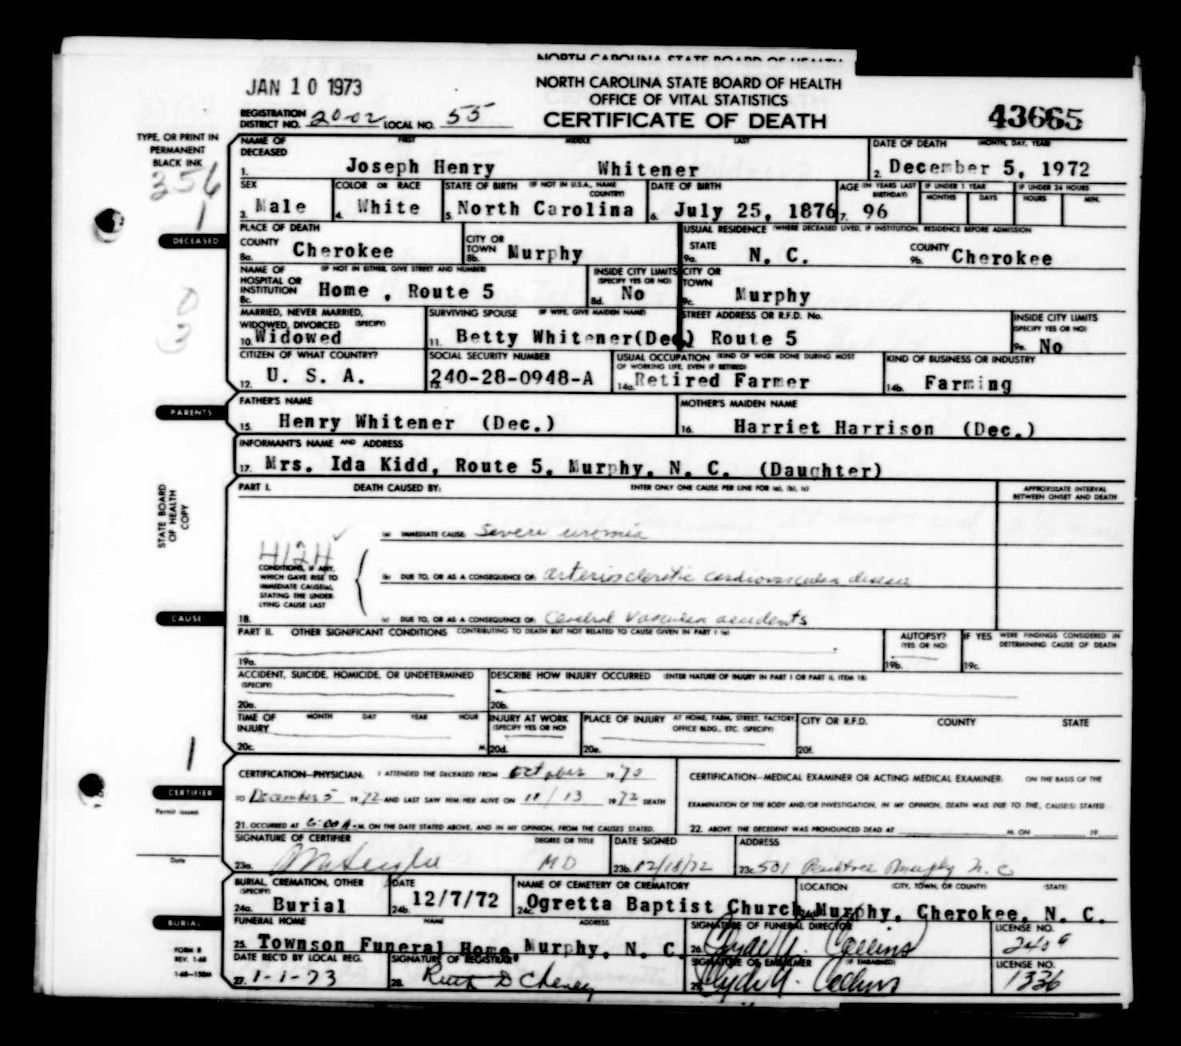 NORTH CAROLINA STATE BOARD OF HEALTH
JAN 10 1973
NORTH CAROLINA STATE BOARD OF HEALTH
OFFICE OF VITAL STATISTICS
CERTIFICATE OF DEATH
43665
REGISTRATION DISTRICT NO. 20-02 LOCAL NO. 55
TYPE, OR PRINT IN PERMANENT BLACK INK
356
1
NAME OF DECEASED FIRST MIDDLE LAST
1. Joseph Henry Whitener
DATE OF DEATH (MONTH, DAY, YEAR)
2. December 5, 1972
SEX
3. Male
COLOR OR RACE
4. White
STATE OF BIRTH (IF NOT IN U.S.A., NAME COUNTRY)
5. North Carolina
DATE OF BIRTH
6. July 25, 1876
AGE (IN YEARS LAST BIRTHDAY)
7. 96
IF UNDER 1 YEAR MONTHS DAYS
IF UNDER 24 HOURS HOURS MIN.
DECEASED
PLACE OF DEATH
8a. COUNTY Cherokee
CITY OR TOWN
8b. Murphy
USUAL RESIDENCE (WHERE DECEASED LIVED, IF INSTITUTION, RESIDENCE BEFORE ADMISSION
9a. STATE N. C.
9b. COUNTY Cherokee
0
3
NAME OF HOSPITAL OR INSTITUTION (IF NOT IN EITHER, GIVE STREET AND NUMBER)
8c. Home , Route 5
INSIDE CITY LIMITS (SPECIFY YES OR NO)
8d. No
CITY OR TOWN
9c. Murphy
MARRIED, NEVER MARRIED, WIDOWED, DIVORCED (SPECIFY)
10. Widowed
SURVIVING SPOUSE (IF WIFE, GIVE MAIDEN NAME)
11. Betty Whitener(Dec)
STREET ADDRESS OR R.F.D. No.
Route 5
INSIDE CITY LIMITS (SPECIFY YES OR NO)
9e. No
CITIZEN OF WHAT COUNTRY?
12. U. S. A.
SOCIAL SECURITY NUMBER
13. 240-28-0948-A
USUAL OCCUPATION (KIND OF WORK DONE DURING MOST OF WORKING LIFE, EVEN IF RETIRED)
14a. Retired Farmer
KIND OF BUSINESS OR INDUSTRY
14b. Farming
PARENTS
FATHER'S NAME
15. Henry Whitener (Dec.)
MOTHER'S MAIDEN NAME
16. Harriet Harrison (Dec.)
INFORMANT'S NAME AND ADDRESS
17. Mrs. Ida Kidd, Route 5, Murphy, N. C. (Daughter)
STATE BOARD OF HEALTH COPY
PART I. DEATH CAUSED BY: ENTER ONLY ONE CAUSE PER LINE FOR (a), (b), (c)
APPROXIMATE INTERVAL BETWEEN ONSET AND DEATH
(a) IMMEDIATE CAUSE: Severe uremia
4124
CONDITIONS, IF ANY, WHICH GAVE RISE TO IMMEDIATE CAUSE(a), STATING THE UNDERLYING CAUSE LAST
(b) DUE TO, OR AS A CONSEQUENCE OF: arteriosclerotic cardiovascular disease
CAUSE
18. (c) DUE TO, OR AS A CONSEQUENCE OF: Cerebral Vascular accidents
PART II. OTHER SIGNIFICANT CONDITIONS CONTRIBUTING TO DEATH BUT NOT RELATED TO CAUSE GIVEN IN PART I (a)
19a.
AUTOPSY? (YES OR NO)
19b.
IF YES WERE FINDINGS CONSIDERED IN DETERMINING CAUSE OF DEATH
19c.
ACCIDENT, SUICIDE, HOMICIDE, OR UNDETERMINED (SPECIFY)
20a.
DESCRIBE HOW INJURY OCCURRED (ENTER NATURE OF INJURY IN PART I OR PART II, ITEM 18)
20b.
TIME OF INJURY MONTH DAY YEAR HOUR
20c. M.
INJURY AT WORK (SPECIFY YES OR NO)
20d.
PLACE OF INJURY AT HOME, FARM, STREET, FACTORY, OFFICE BLDG., ETC. (SPECIFY)
20e.
CITY OR R.F.D. COUNTY STATE
20f.
1
CERTIFIER
Permit issued
Date
CERTIFICATION—PHYSICIAN: I ATTENDED THE DECEASED FROM October 19 70
TO December 5 19 72 AND LAST SAW HIM HER ALIVE ON 11/13 19 72 DEATH
21. OCCURRED AT 6:00 A.M. ON THE DATE STATED ABOVE, AND IN MY OPINION, FROM THE CAUSES STATED.
CERTIFICATION—MEDICAL EXAMINER OR ACTING MEDICAL EXAMINER: ON THE BASIS OF THE
EXAMINATION OF THE BODY AND/OR INVESTIGATION, IN MY OPINION, DEATH WAS DUE TO THE, CAUSE(S) STATED
22. ABOVE. THE DECEDENT WAS PRONOUNCED DEAD AT M. ON 19
SIGNATURE OF CERTIFIER DEGREE OR TITLE
23a. MD
DATE SIGNED
23b. 12/18/72
ADDRESS
23c. 501 Peachtree Murphy N. C
BURIAL, CREMATION, OTHER (SPECIFY)
24a. Burial
DATE
24b. 12/7/72
NAME OF CEMETERY OR CREMATORY
24c. Ogretta Baptist Church
LOCATION (CITY, TOWN, OR COUNTY) (STATE)
24d. Murphy, Cherokee, N. C.
BURIAL
FUNERAL HOME NAME ADDRESS
25. Townson Funeral Home Murphy, N. C.
SIGNATURE OF FUNERAL DIRECTOR
26. Clyde A. Collins
LICENSE NO.
2409
FORM 8
REV. 1-68
1-68—150M
DATE REC'D BY LOCAL REG.
27. 1-1-73
SIGNATURE OF REGISTRAR
28. Ruth D Cheney
SIGNATURE OF EMBALMER (IF EMBALMED)
29. Clyde A. Collins
LICENSE NO.
1336